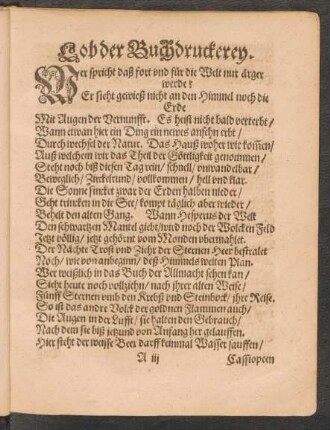 Lob der Buchdruckerey.
Wer spricht daß fort vnd für die Welt nur ärger
werde?
Er sieht gewieß nicht an den Himmel noch die
Erde
Mit Augen der Vernunfft. Es heist nicht bald verterbt /
Wann etwan hier ein Ding ein newes ansehn erbt /
Durch wechsel der Natur. Das Hauß woher wir kom̃en /
Auß welchem wir das Theil der Göttligkeit genommen /
Steht noch biß diesen Tag rein / schnell / vnwandelbar /
Beweglich / Zirckelrund / vollkommen / hell vnd klar.
Die Sonne sincket zwar der Erden halben nieder /
Geht trincken in die See / kompt täglich aber wieder /
Behelt den alten Gang. Wann Hesperus der Welt
Den schwartzen Mantel gibt / wird noch der Wolcken Feld
Jetzt völlig / jetzt gehörnt vom Monden vbermahlet.
Der Nächte Trost vnd Ziehr der Sternen Heer bestralet
Noch / wie von anbegin / deß Himmels weiten Plan.
Wer weißlich in das Buch der Allmacht sehen kan /
Sieht heute noch vollziehn / nach jhrer alten Weise /
Fünff Sternen vmb den Krebß vnd Steinbock / jhre Reise.
So ist das andre Volck der goldnen Flammen auch /
Die Augen in der Lufft / sie halten den Gebrauch /
Nach dem sie biß jetzund von Anfang her gelauffen.
Hier steht der weisse Beer darff keinmal Wasser sauffen /
A iij
Cassiopeen